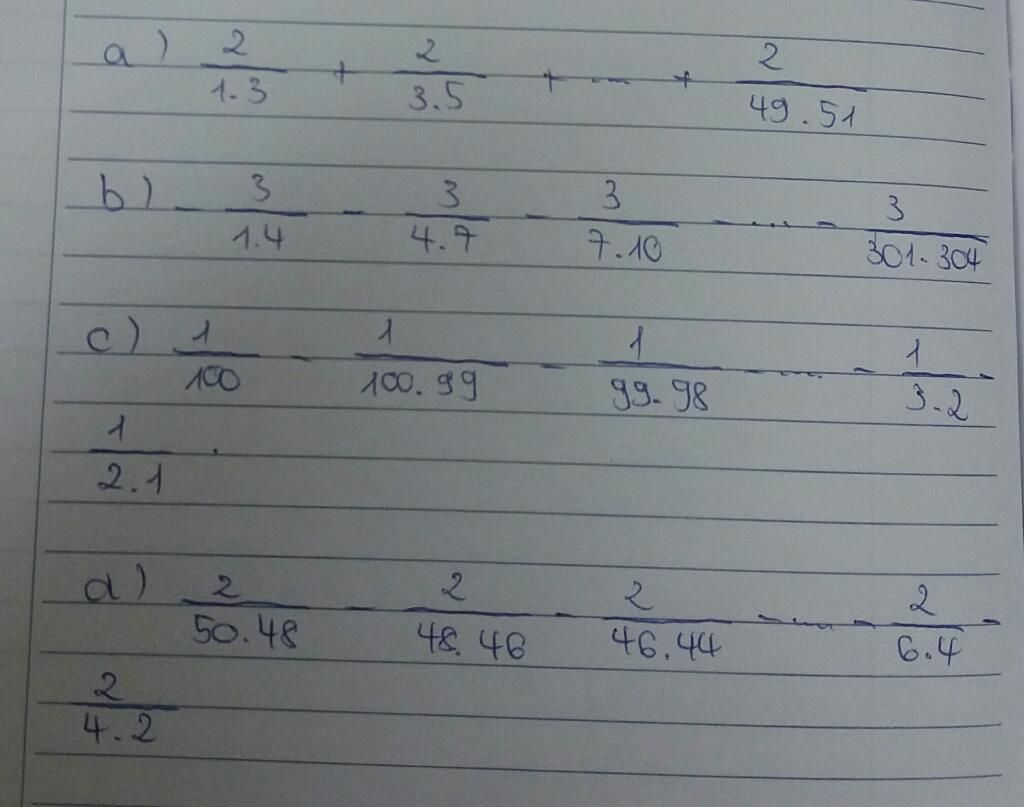 a) 2/1.3 + 2/3.5 + ... + 2/49.51
b) - 3/1.4 - 3/4.7 - 3/7.10 - .... - 3/301.304
c) 1/100 - 1/100.99 - 1/99.98 - .... - 1/3.2 -
1/2.1 .
d) 2/50.48 - 2/48.46 - 2/46.44 - .... - 2/6.4 -
2/4.2